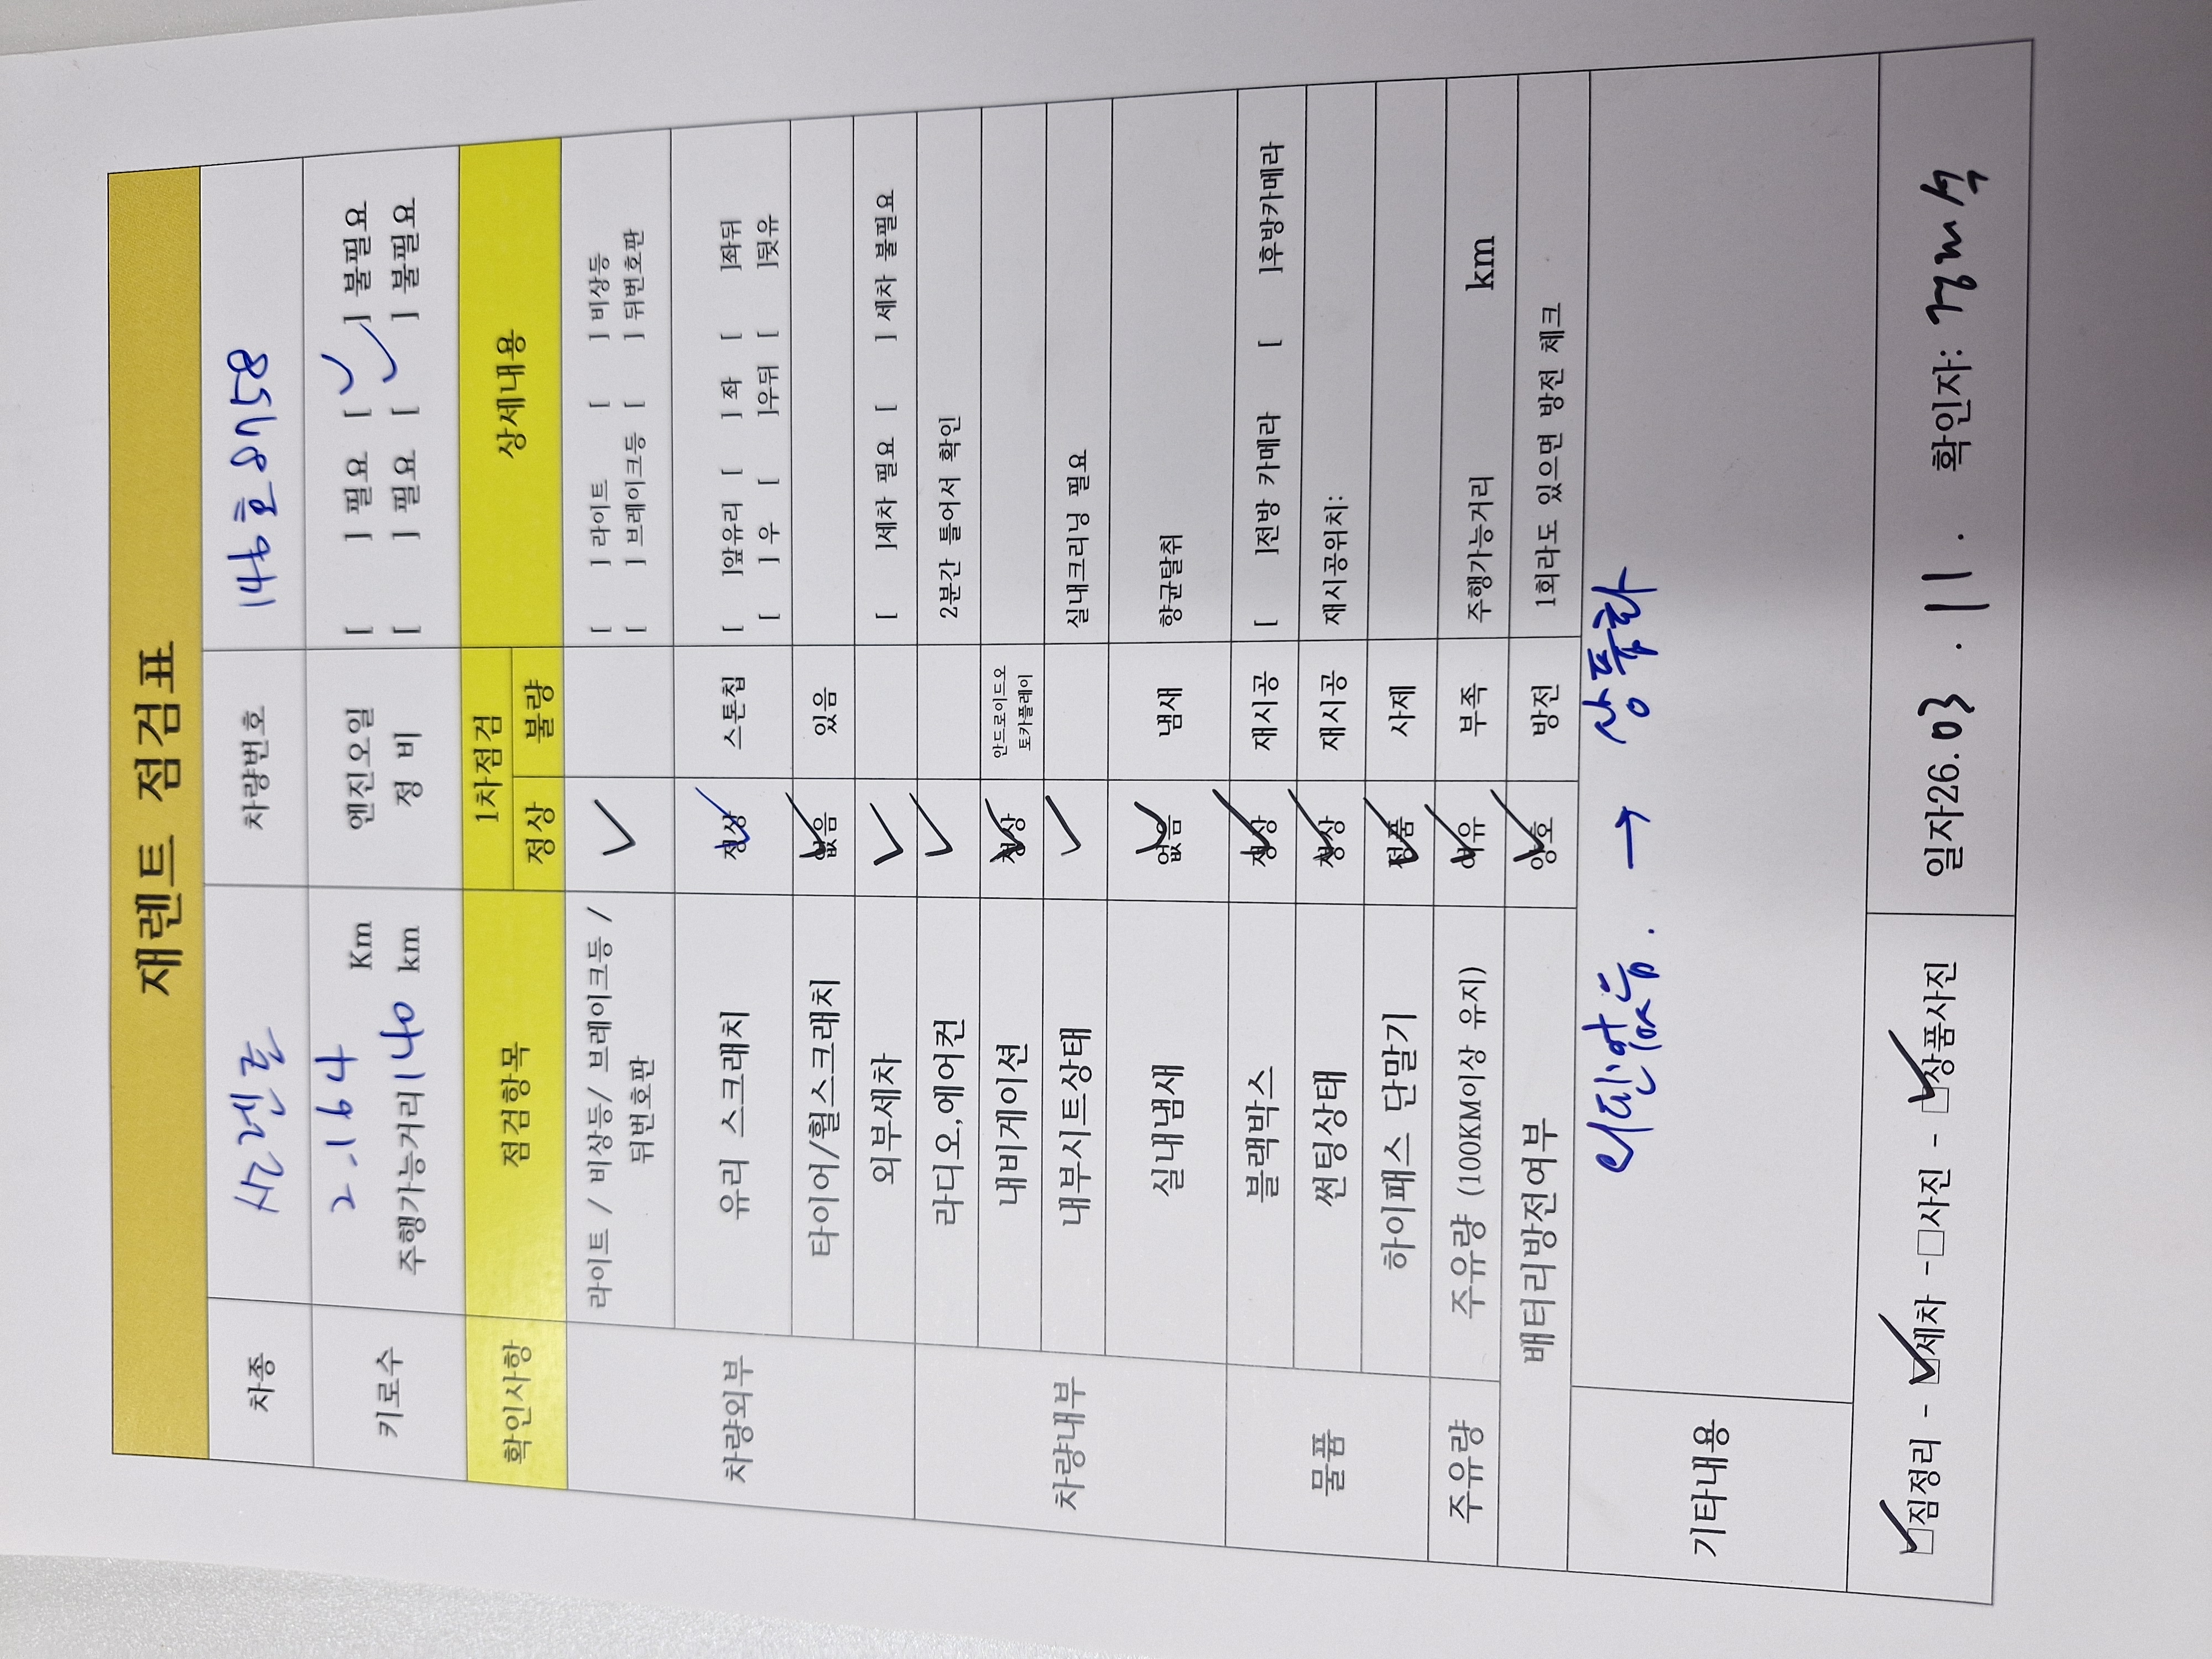 재렌트 점검표
차종 쏘렌토 차량번호 146호8758
키로수 2.164 Km 엔진오일 [ ] 필요 [✓] 불필요
주행가능거리 140 km 정 비 [ ] 필요 [✓] 불필요
확인사항 점검항목 1차점검 상세내용
정상 불량
차량외부 라이트 / 비상등/ 브레이크등 / ✓ [ ] 라이트 [ ] 비상등
뒤번호판 [ ] 브레이크등 [ ] 뒤번호판
유리 스크래치 정상 ✓ 스톤칩 [ ]앞유리 [ ] 좌 [ ]좌뒤
[ ] 우 [ ]우뒤 [ ]뒷유
타이어/휠스크래치 없음 ✓ 있음
외부세차 ✓ [ ]세차 필요 [ ] 세차 불필요
차량내부 라디오,에어컨 ✓ 2분간 틀어서 확인
내비게이션 정상 ✓ 안드로이드오
토카플레이
내부시트상태 ✓ 실내크리닝 필요
실내냄새 없음 ✓ 냄새 향균탈취
물품 블랙박스 정상 ✓ 재시공 [ ]전방 카메라 [ ]후방카메라
썬팅상태 정상 ✓ 재시공 재시공위치:
하이패스 단말기 정품 ✓ 사제
주유량 주유량 (100KM이상 유지) 여유 ✓ 부족 주행가능거리 km
배터리방전여부 양호 ✓ 방전 1회라도 있으면 방전 체크
기타내용 이단없음. → 상품화
☑짐정리 - ☑세차 - □사진 - ☑상품사진 일자26.03.11. 확인자: